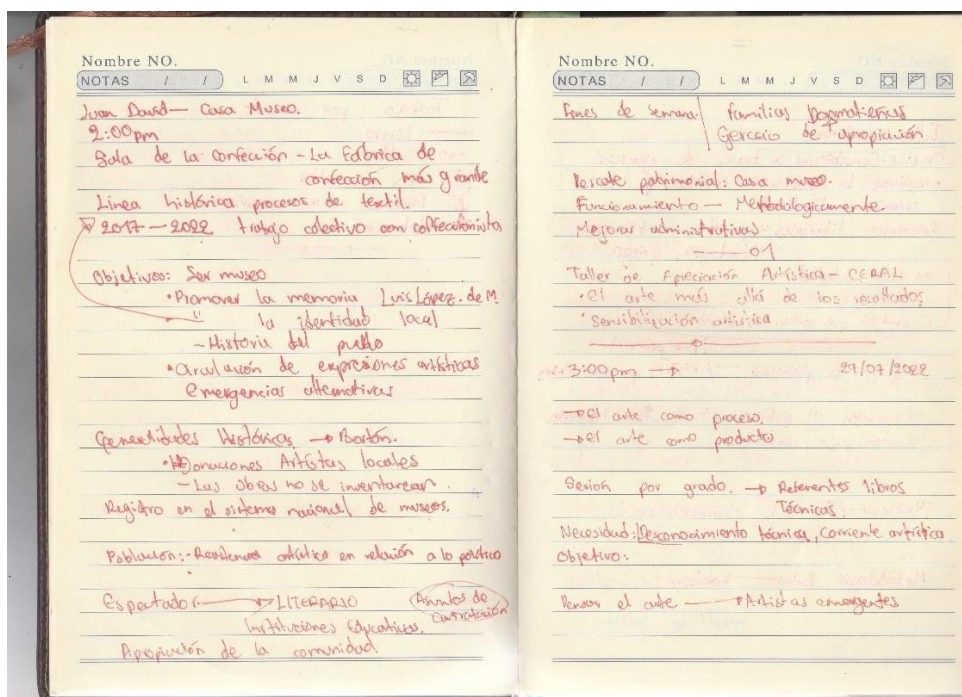 Nombre NO.
NOTAS / / L M M J V S D
Juan David — Casa Museo.
2:00pm
Sala de la Confección - La Fábrica de
confección más grande
Linea histórica procesos de textil.
2017 — 2022 trabajo colectivo con confeccionistas
Objetivos: Ser museo
• Promover la memoria Luis López. de M.
" la identidad local
- Historia del
• Circulación de expresiones artísticas
Emergencias alternativas
Generalidades Históricas →
• Donaciones Artistas locales
- Las obras no se inventarean.
Registro en el sistema nacional de museos.
Población: - artístico en relación a lo político
Espectador → LITERARIO
Asuntos de
Contratación
Instituciones Educativas.
Apropiación de la comunidad
Nombre NO.
NOTAS / / L M M J V S D
Fines de semana. Familias
de apropiación
Rescate patrimonial: Casa museo.
Funcionamiento — Metodologicamente.
Mejorar administrativas
01
Taller de Apreciación Artística - CERAL
• el arte más allá de los resultados
• Sensibilización artística
3:00pm → 29/07/2022
→ el arte como proceso.
→ el arte como producto
Sesión por grado. → Referentes libros
Técnicas
Necesidad: Desconocimiento técnica, Corriente artística
Objetivo:
Pensar el arte → Artistas emergentes